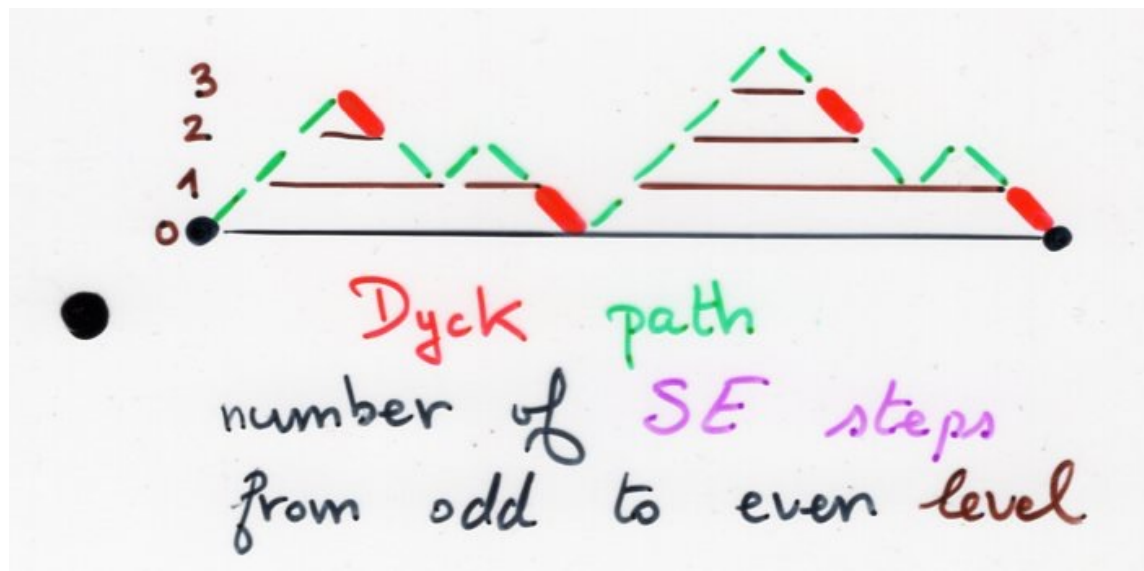 3
2
1
0
Dyck path
number of SE steps
from odd to even level